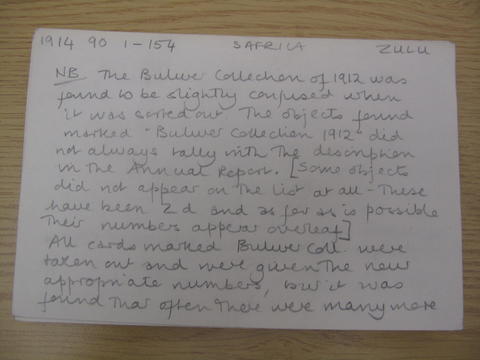 1914 90 1-154 SAFRICA ZULU
NB The Bulwer Collection of 1912 was
found to be slightly confused when
it was sorted out. The objects found
marked "Bulwer Collection 1912" did
not always tally with the description
in the Annual Report. [Some objects
did not appear on the list at all - These
have been 2 d and as far as is possible
their numbers appear overleaf]
All cards marked Bulwer Coll. were
taken out and were given the new
appropriate numbers, but it was
found that often there were many more